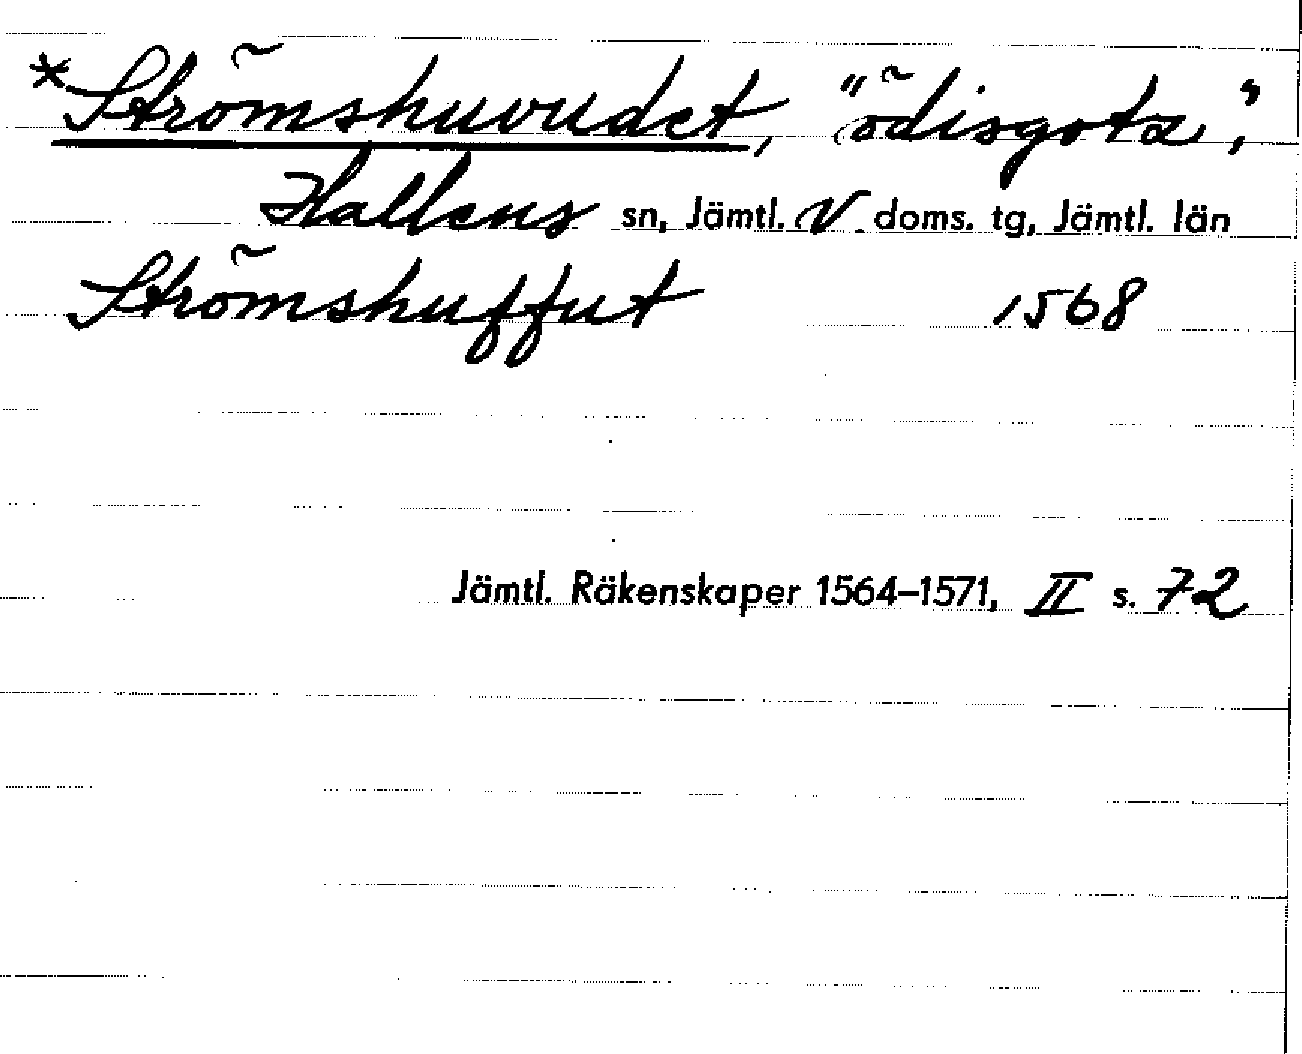 *Strömshuvudet, "ödisgotz",
Hallens sn, Jämtl. V doms. tg, Jämtl. län
Strömshuffut 1568
Jämtl. Räkenskaper 1564–1571, II s. 72